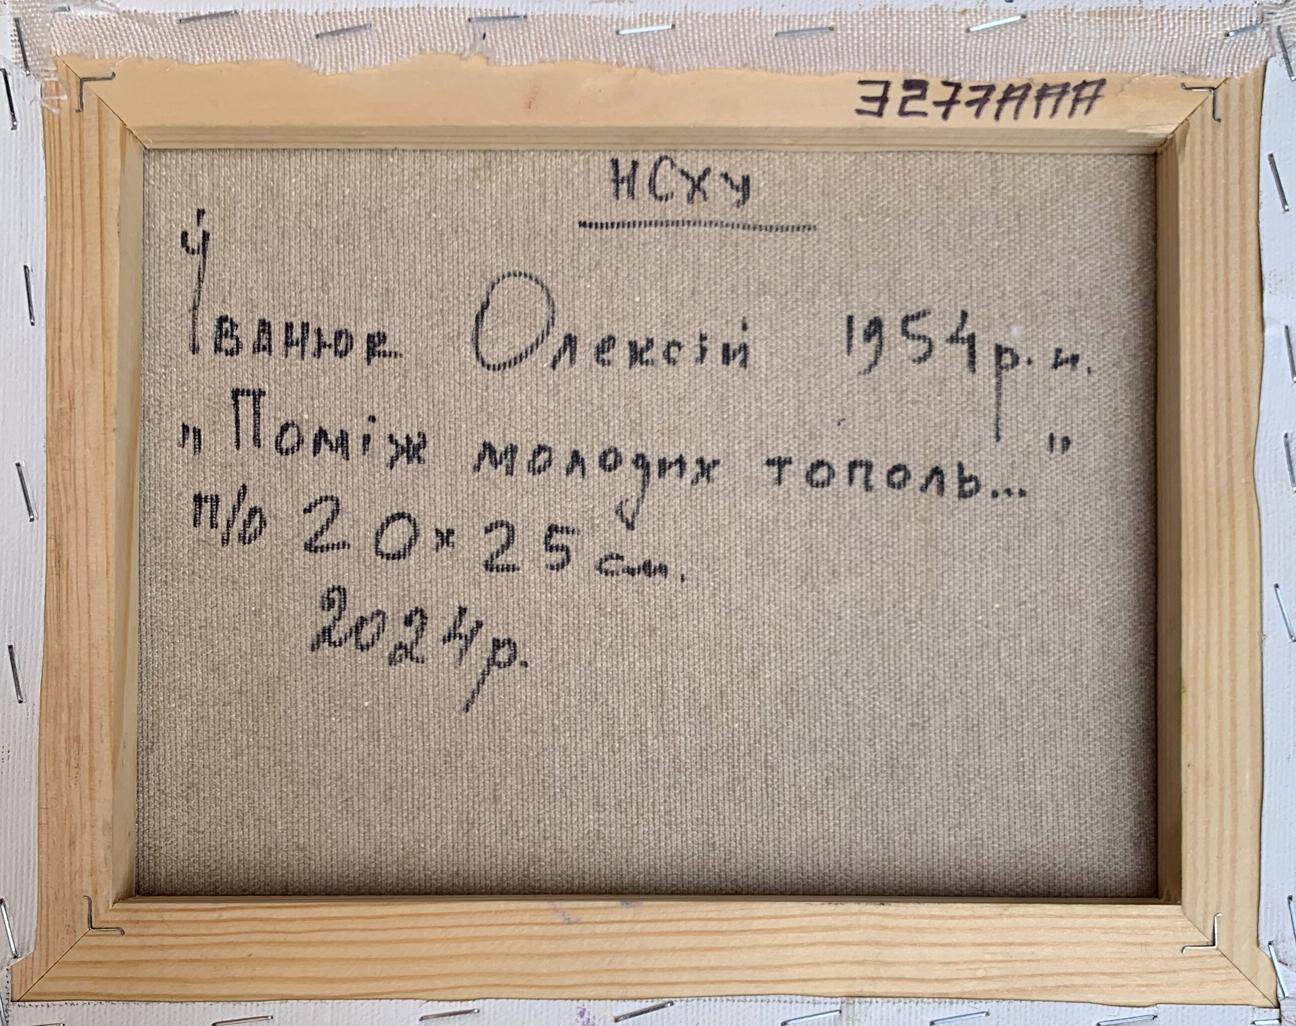 3277AAA
НСХУ
Іванюк Олексій 1954 р.н.
„Поміж молодих тополь..."
п/о 20х25 см.
2024р.